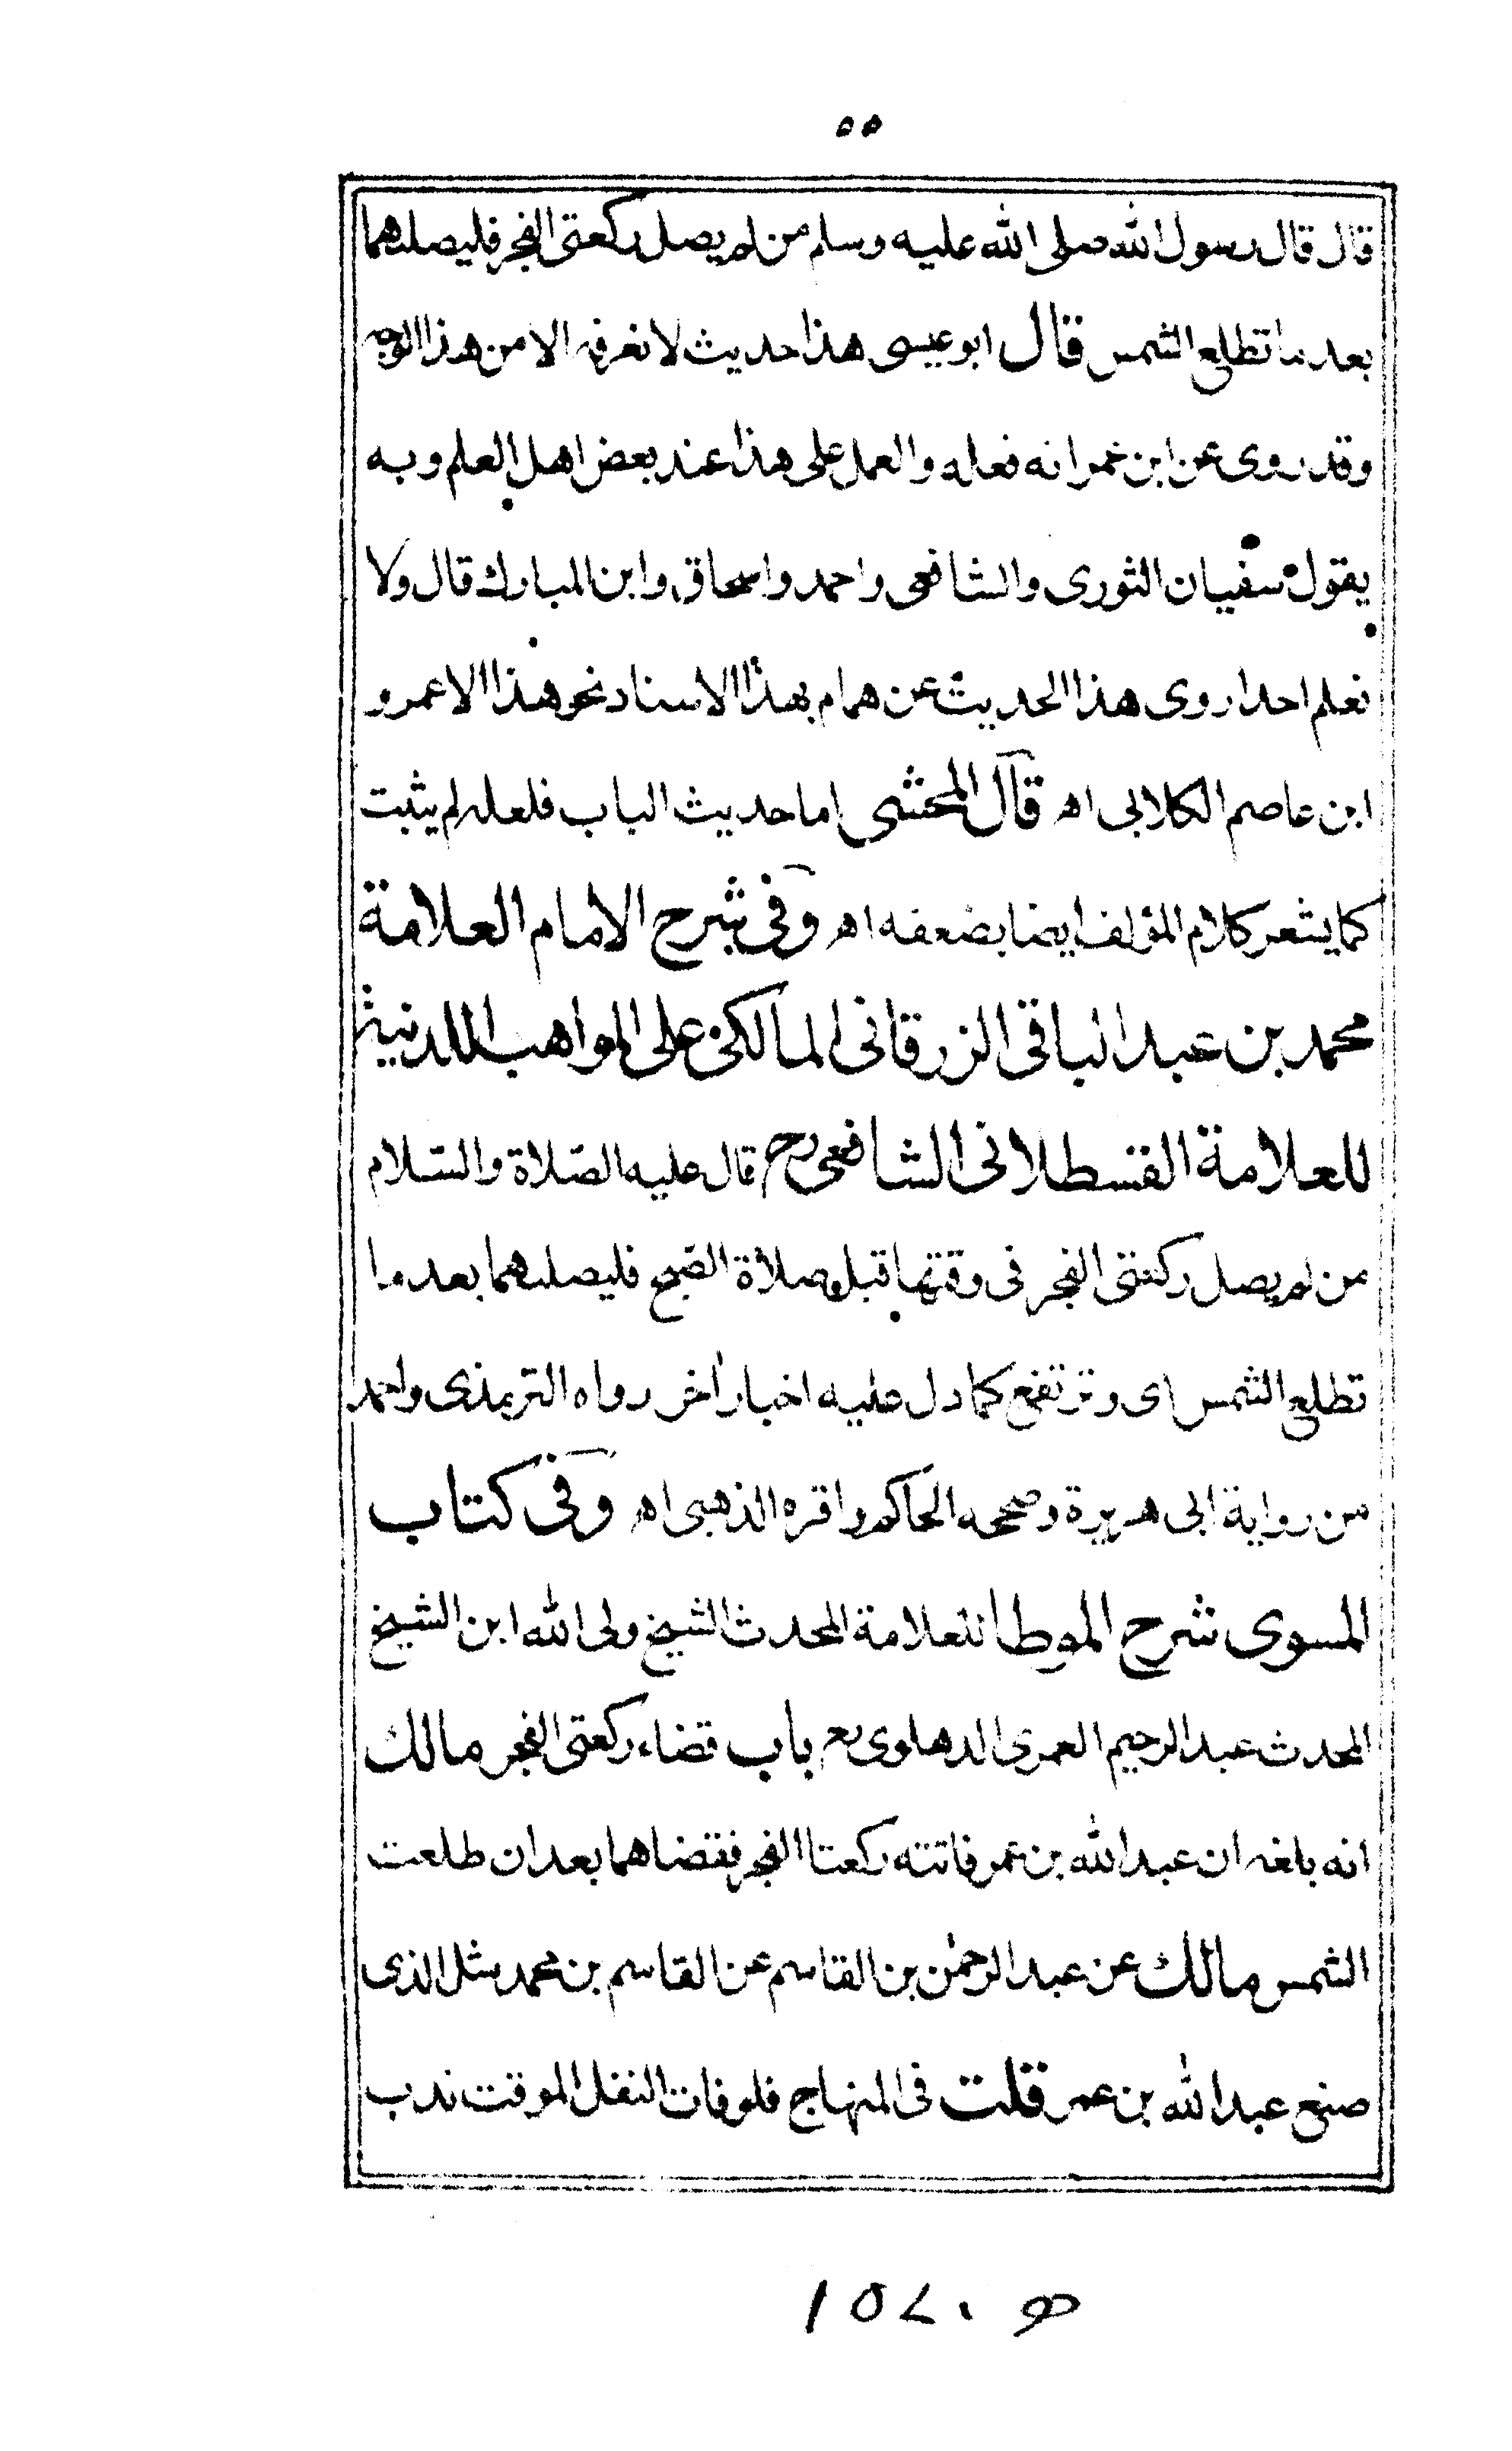 ٥٥
قال قال رسول الله صلى الله عليه وسلم من لم يصل ركعتى الفجر فليصلهما
بعد ما تطلع الشمس قال ابو عيسى هذا حديث لا نعرفه الا من هذا الوجه
وقد روى عن ابن عمر انه فعله والعمل على هذا عند بعض اهل العلم وبه
يقول سفيان الثورى والشافعى واحمد واسحاق وابن المبارك قال ولا
نعلم احدا روى هذا الحديث عن همام بهذا الاسناد نحو هذا الا عمرو
ابن عاصم الكلابى اه قال المحشى اما حديث الباب فلعله لم يثبت
كما يشعر كلام المؤلف ايضا بضعفه اه وفى شرح الامام العلامة
محمد بن عبد الباقى الزرقانى المالكى على المواهب اللدنية
للعلامة القسطلانى الشافعى رح قال عليه الصّلاة والسّلام
من لم يصل ركعتى الفجر فى وقتها قبل صلاة الصّبح فليصلهما بعد ما
تطلع الشمس اى وترتفع كما دل عليه اخبار اخر رواه الترمذى واحمد
من رواية ابى هريرة وصححه الحاكم واقره الذهبى اه وفى كتاب
المسوى شرح الموطا للعلامة المحدث الشيخ ولى الله ابن الشيخ
المحدث عبد الرحيم العمرى الدهلوى رح باب قضاء ركعتى الفجر مالك
انه بلغه ان عبد الله بن عمر فاتته ركعتا الفجر فقضاهما بعد ان طلعت
الشمس مالك عن عبد الرحمٰن بن القاسم عن القاسم بن محمد مثل الذى
صنع عبد الله بن عمر قلت فى المنهاج فلو فات النفل الموقت ندب